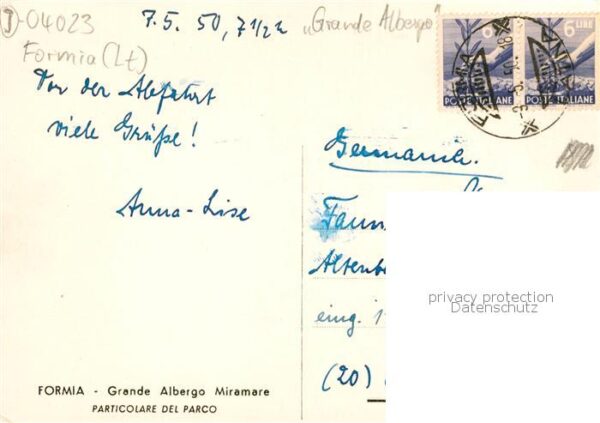 J-04023
Formia (Lt)
7.5. 50, 7 1/2 h
„Grande Albergo"
6 LIRE
POSTE ITALIANE POSTE ITALIANE
FORMIA
Vor der Abfahrt
viele Grüße!
Anna-Lise
Germania.
(20)
privacy protection
Datenschutz
FORMIA - Grande Albergo Miramare
PARTICOLARE DEL PARCO